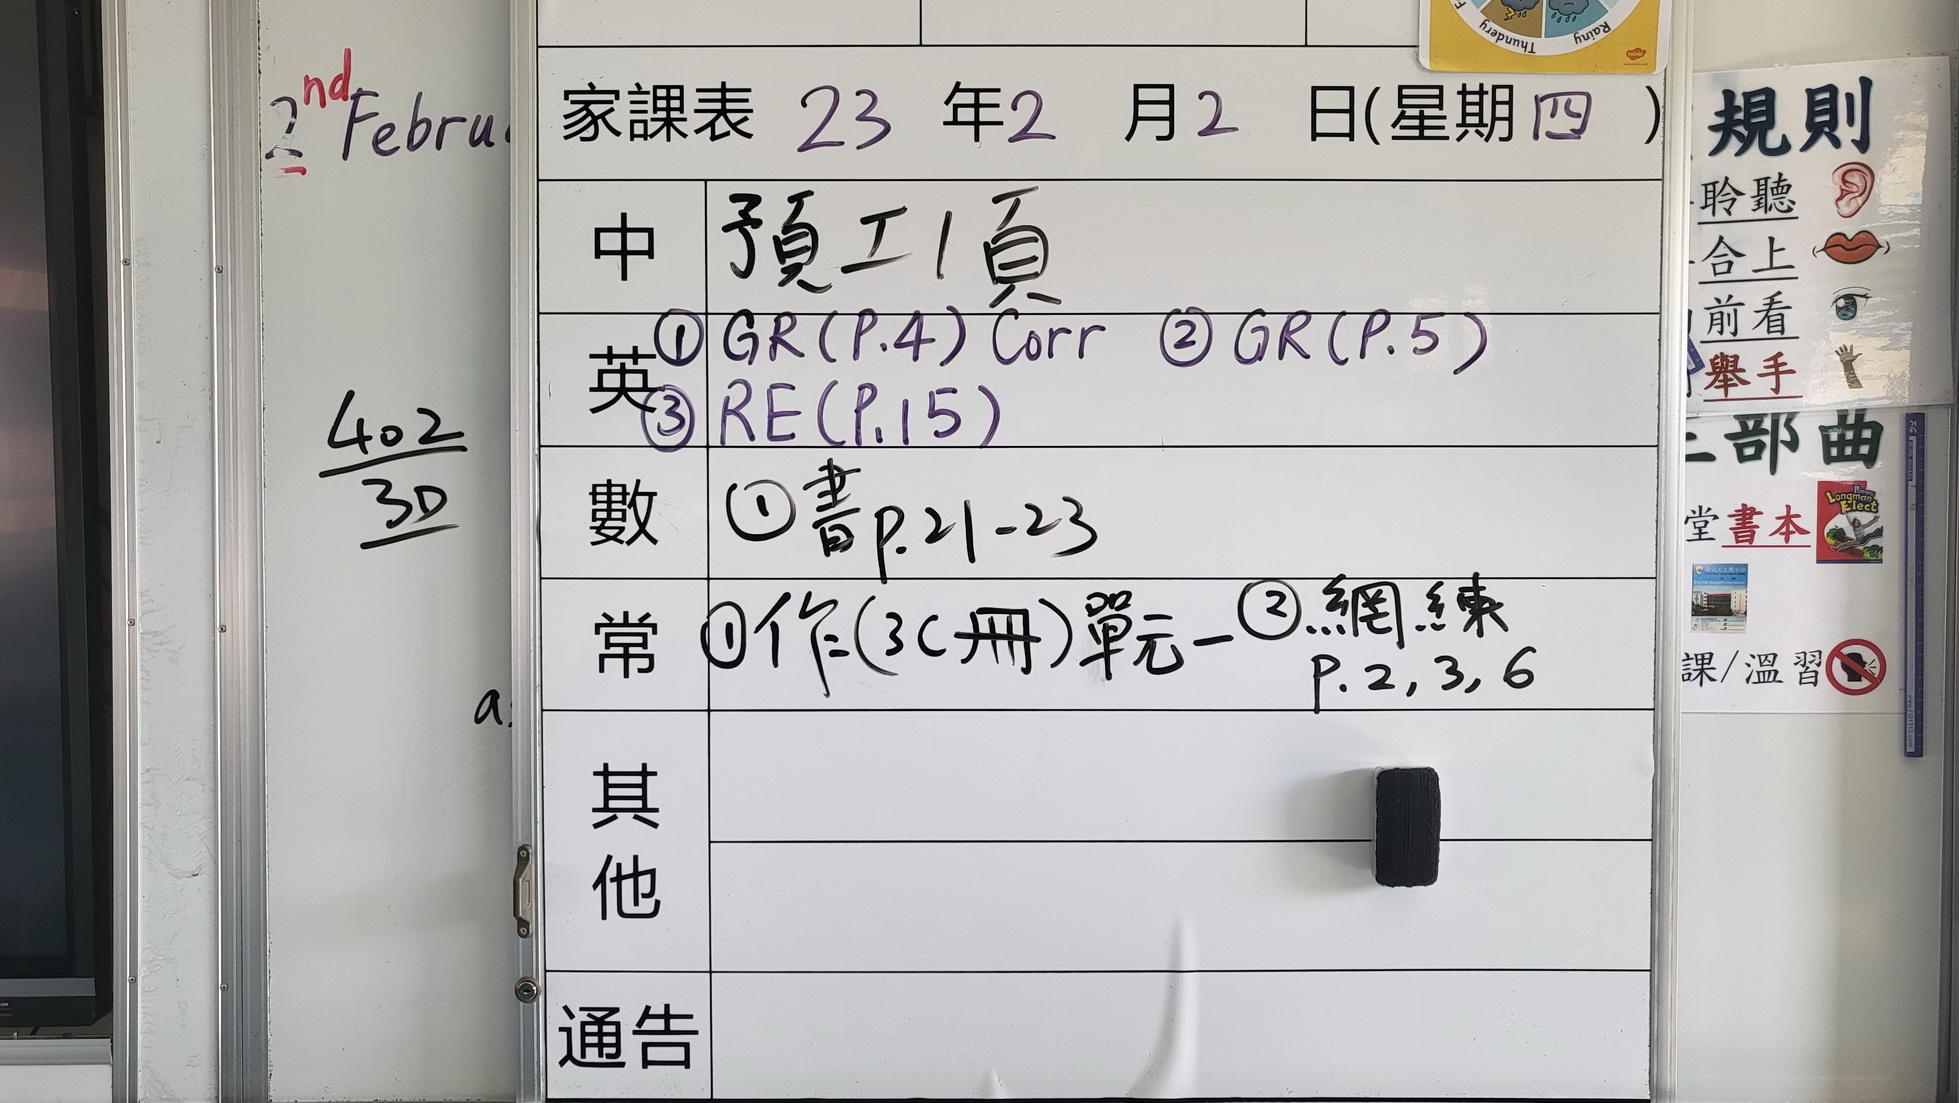 Thundery
Rainy
2nd Februa
家課表 23 年2 月2 日(星期四 )
中 預工1頁
英 ① GR(P.4) Corr ② GR(P.5)
③ RE(P.15)
數 ①書p.21-23
常 ①作(3C冊)單元一 ②網練
p.2,3,6
其他
通告
402
30
a
規則
聆聽
合上
前看
舉手
部曲
堂書本
Longman Elect
課/溫習